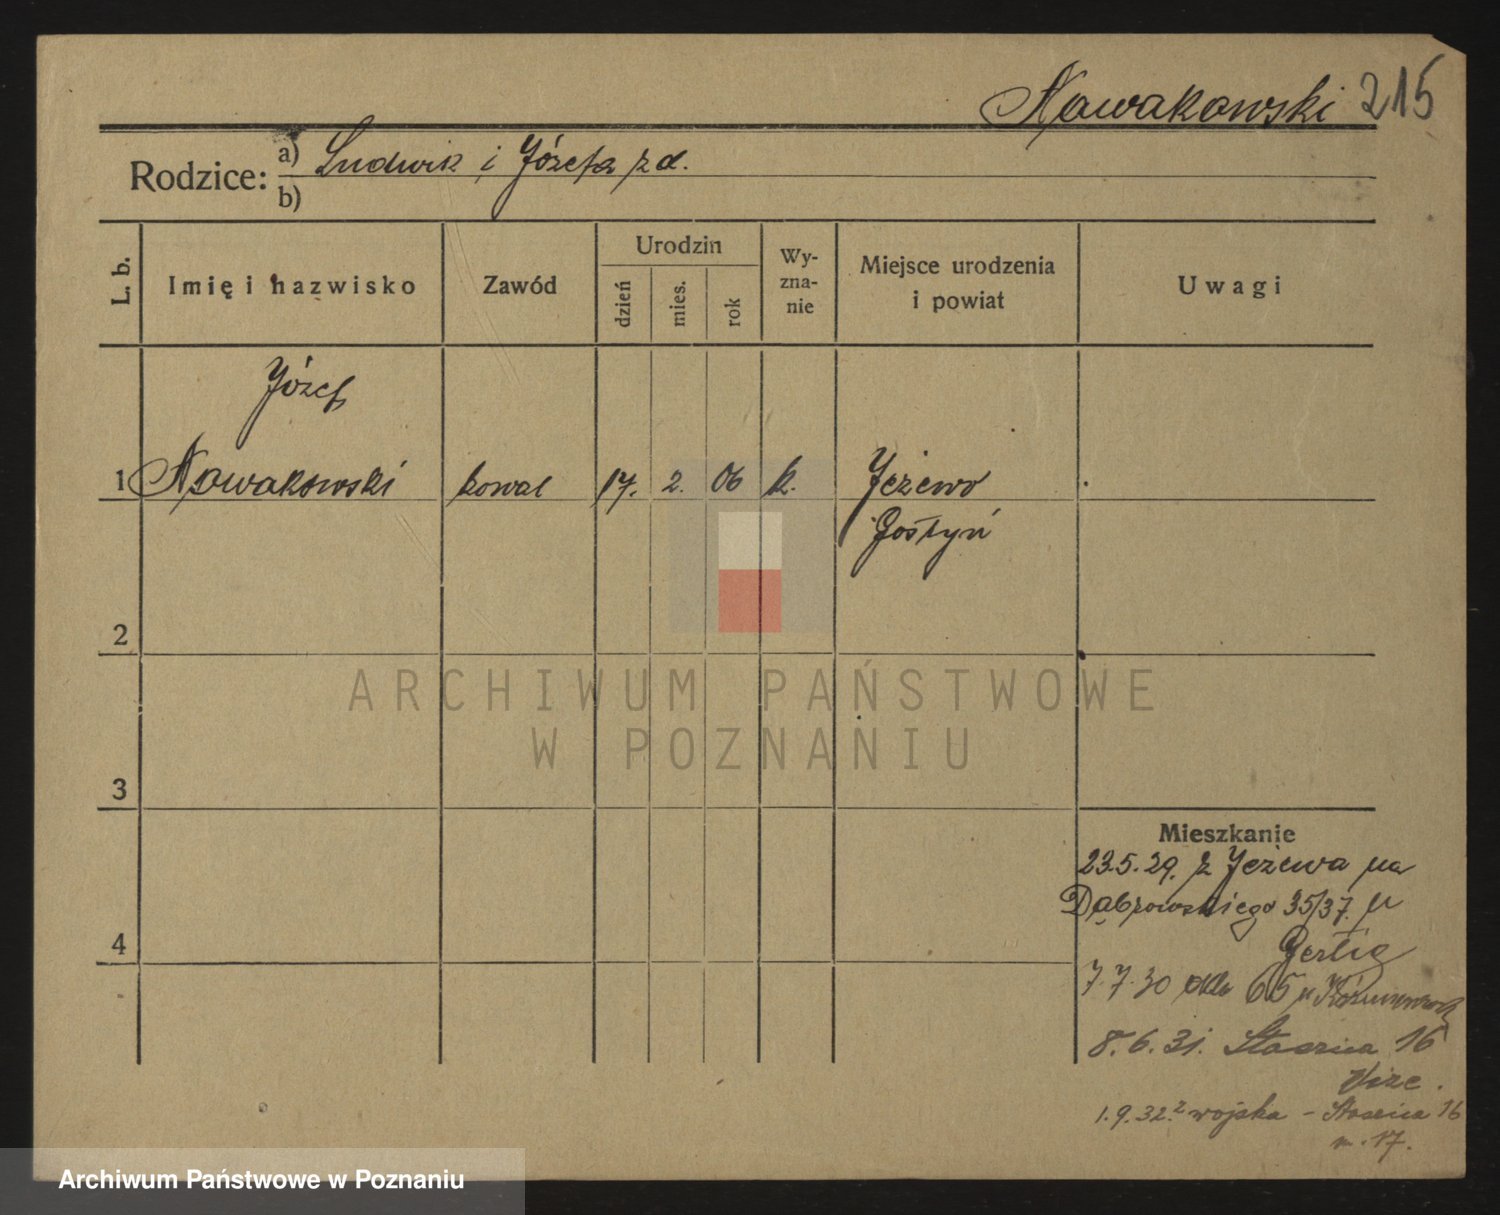 Nowakowski 215
Rodzice: a) Ludwik i Józefa zd.
b)
L. b. Imię i nazwisko Zawód Urodzin dzień mies. rok Wyznanie Miejsce urodzenia i powiat Uwagi
Józef
1 Nowakowski kowal 17. 2. 06 k. Jeżewo
Gostyń
2
ARCHIWUM PAŃSTWOWE
W POZNANIU
3
Mieszkanie
23.5.29. z Jeżewa na
Dąbrowskiego 35/37. u
4
Gertig
7.7.30 65 u
8.6.31. Staszica 16
1.9.32. z wojska - Staszica 16
m. 17.
Archiwum Państwowe w Poznaniu